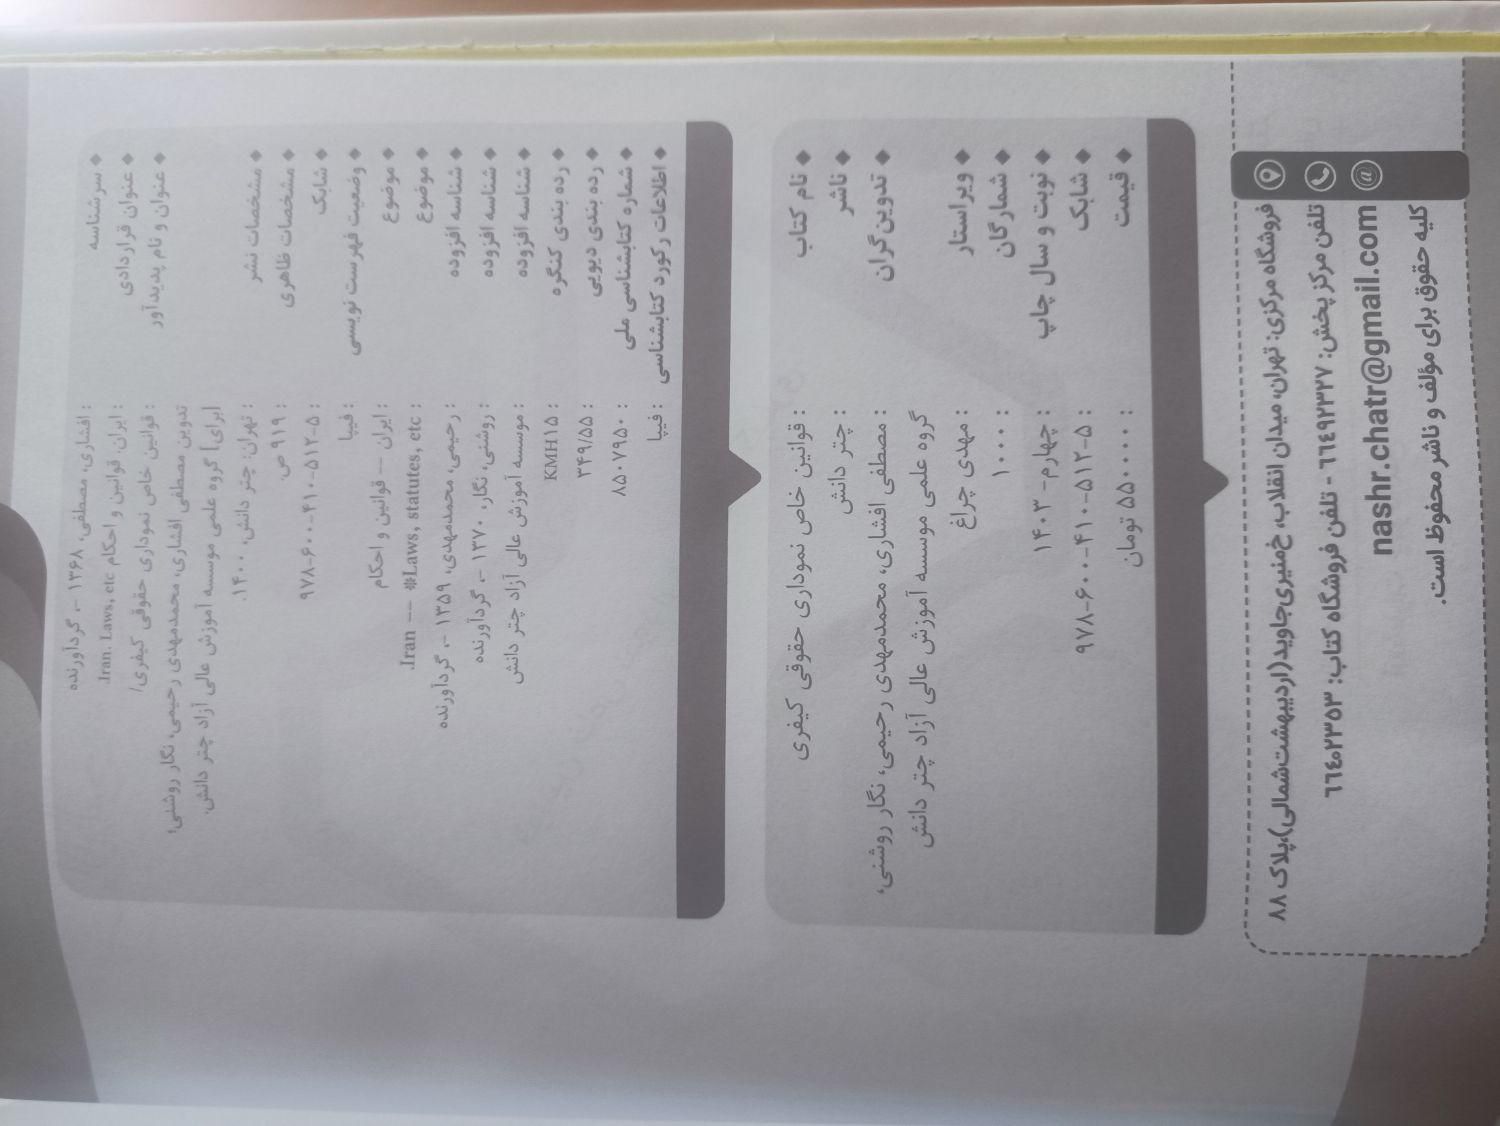 ◆ سرشناسه : افشاری، مصطفی، ۱۳۶۸ -، گردآورنده
◆ عنوان قراردادی : ایران. قوانین و احکام Iran. Laws, etc.
◆ عنوان و نام پدیدآور : قوانین خاص نموداری حقوقی کیفری/
تدوین مصطفی افشاری، محمدمهدی رحیمی، نگار روشنی؛
[برای] گروه علمی موسسه آموزش عالی آزاد چتر دانش.
◆ مشخصات نشر : تهران: چتر دانش، ۱۴۰۰.
◆ مشخصات ظاهری : ۹۱۹ ص.
◆ شابک : ۹۷۸-۶۰۰-۴۱۰-۵۱۲-۵
◆ وضعیت فهرست نویسی : فیپا
◆ موضوع : ایران -- قوانین و احکام
◆ موضوع : Iran -- *Laws, statutes, etc.
◆ شناسه افزوده : رحیمی، محمدمهدی، ۱۳۵۹ -، گردآورنده
◆ شناسه افزوده : روشنی، نگار، ۱۳۷۰ -، گردآورنده
◆ شناسه افزوده : موسسه آموزش عالی آزاد چتر دانش
◆ رده بندی کنگره : KMH۱۵
◆ رده بندی دیویی : ۳۴۹/۵۵
◆ شماره کتابشناسی ملی : ۸۵۰۷۹۵۰
◆ اطلاعات رکورد کتابشناسی : فیپا
◆ نام کتاب : قوانین خاص نموداری حقوقی کیفری
◆ ناشر : چتر دانش
◆ تدوین گران : مصطفی افشاری، محمدمهدی رحیمی، نگار روشنی،
گروه علمی موسسه آموزش عالی آزاد چتر دانش
◆ ویراستار : مهدی چراغ
◆ شمارگان : ۱۰۰۰
◆ نوبت و سال چاپ : چهارم- ۱۴۰۳
◆ شابک : ۹۷۸-۶۰۰-۴۱۰-۵۱۲-۵
◆ قیمت : ۵۵۰۰۰۰ تومان
فروشگاه مرکزی: تهران، میدان انقلاب، خ‌منیری‌جاوید(اردیبهشت‌شمالی)،پلاک ۸۸
تلفن مرکز پخش: ۶۶۴۹۲۳۲۷ - تلفن فروشگاه کتاب: ۶۶۴۰۲۳۵۳
nashr.chatr@gmail.com
کلیه حقوق برای مؤلف و ناشر محفوظ است.